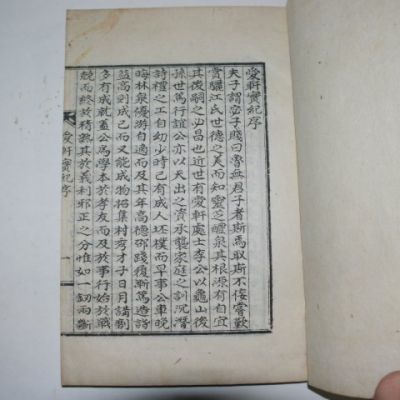 愛軒實紀序
夫子謂宓子賤曰魯無君子者斯焉取斯不佞嘗歎
賞驪江氏世德之美而知靈芝醴泉其根源有自宜
其後嗣之必昌也近世有愛軒處士李公以龜山後
孫世篤行誼公亦以天出之資承襲家庭之訓沉潛
詩禮之工自幼少時已有成人坯樸而早事公車晩
晦林泉優游自適而及其年高德邵踐履漸篤造詣
益高則成己而又能成物招集村秀才子日月講劘
多有成就蓋公爲學本於孝友而及於事行始於戰
兢而終於稍熟其於義利邪正之分惟如一釰兩斷
愛軒實紀序
一